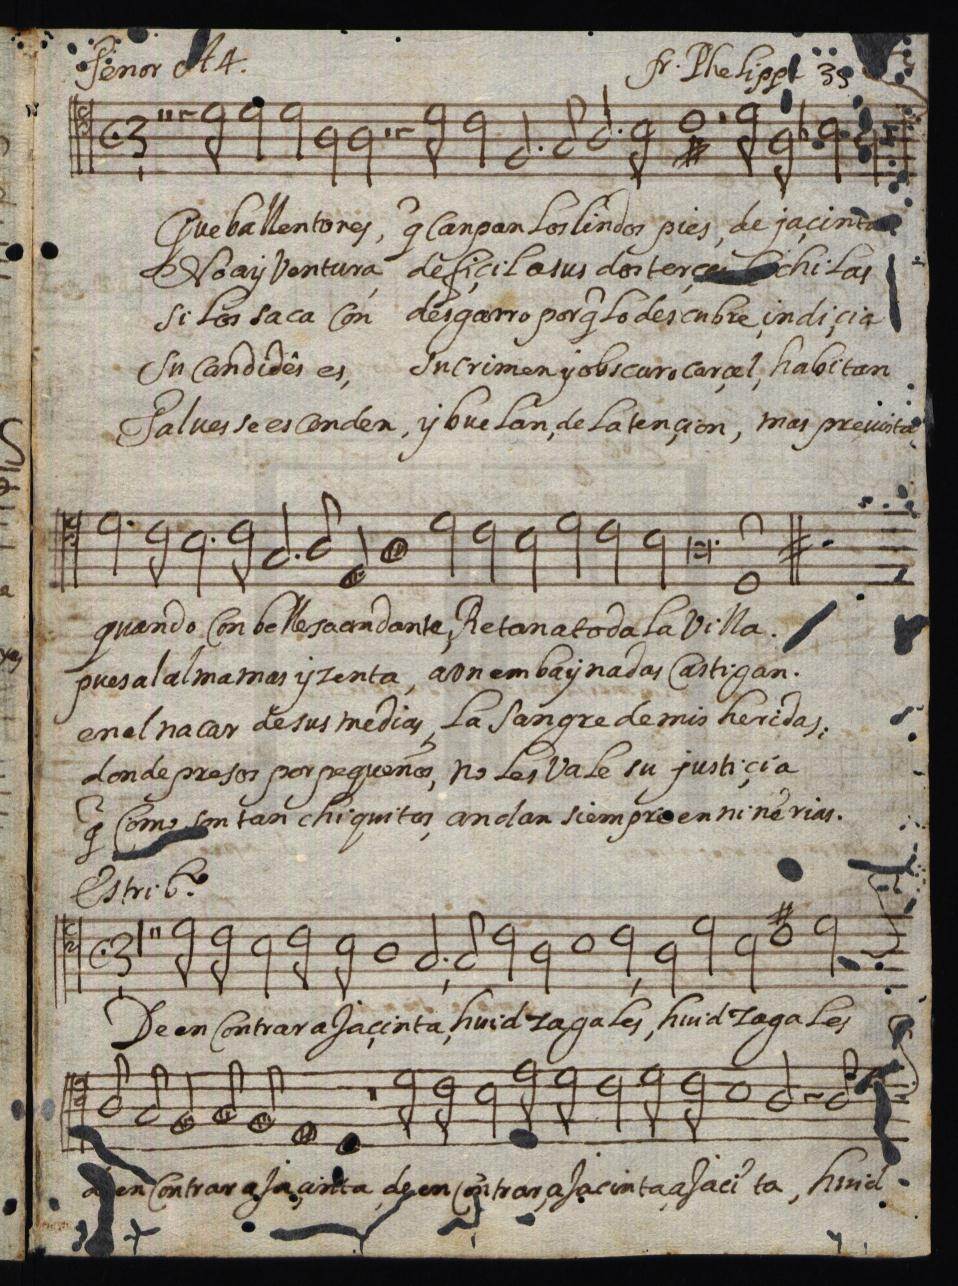 Tenor A 4. fr. Phelippe 39
Que ballentores, q̃ canpan los lindos pies, de jaçinta
No ay Ventura defiçil a sus dos terçer chilas
Si los saca con desgarro porq̃ lo descubre indiçia
Su candides es, su crimen y obscuro carçel, habitan
Tal ves se esconden, y buelan, de latençion, mas prevista
quando con bellesa andante, Retana toda la Villa.
pues al alma mas yzenta, aun embaynadas Castigan.
en el nacar de sus medias, La Sangre de mis heridas,
donde presos por pequeños, no les Vale su justiçia
q̃ Como son tan chiquitos, andan siempre en niñerias.
Estribo.
De encontrar a Jaçinta, huid zagales, huid zagales
de encontrar a Jaçinta, de encontrar, a Jacinta, a Jacita, huid